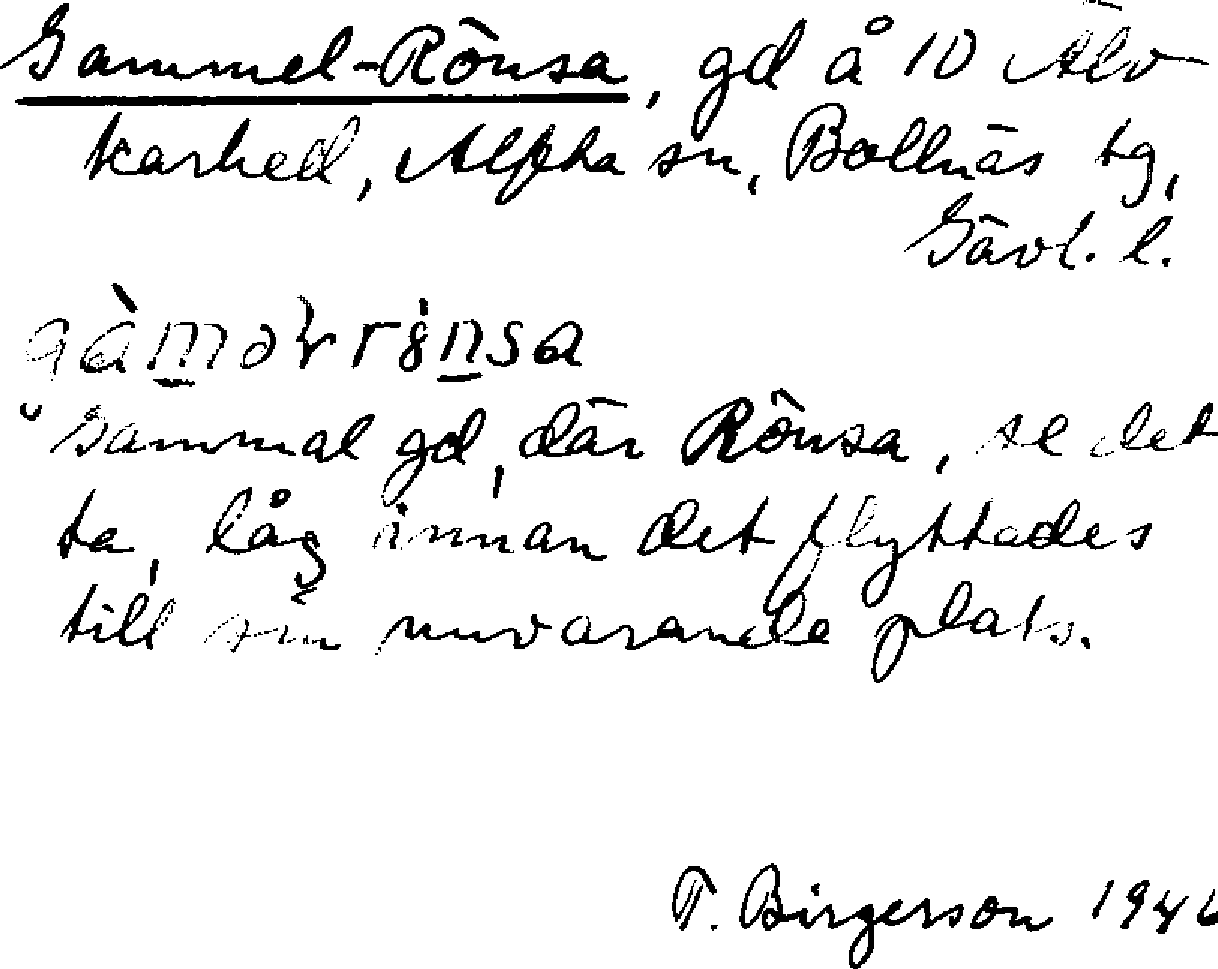 Gammel-Rönsa, gd å 10 Älv
karhed, Alfta sn, Bollnäs tg,
Gävl. l.
Gammal gd, där Rönsa, se det
ta, låg innan det flyttades
till sin nuvarande plats.
T. Birgerson 1946